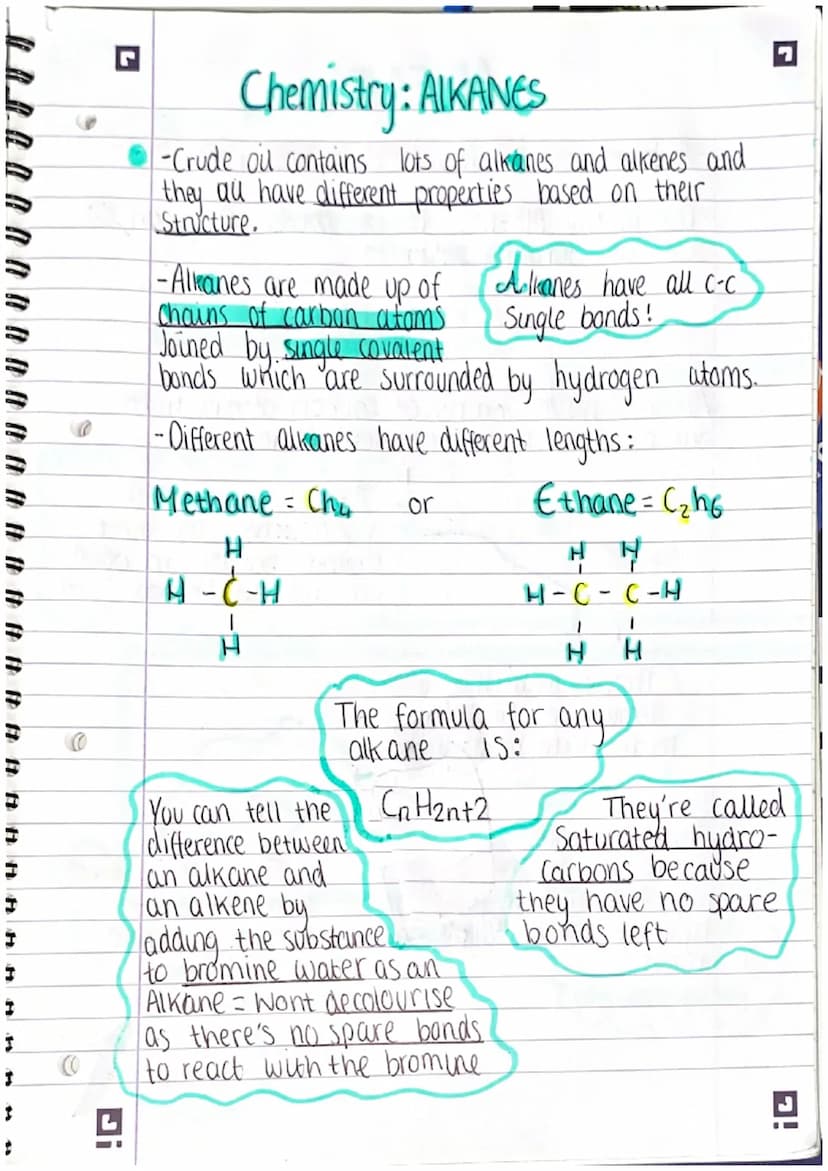 Chemistry: AlKANES
-Crude oil contains lots of alkanes and alkenes and
they all have different properties based on their
structure.
-Alkanes are made up of
chains of carbon atoms
Joined by single covalent
bonds which are surrounded by hydrogen atoms.
Alkanes have all C-C
Single bonds!
-Different alkanes have different lengths:
Methane = Ch4 or Ethane = C2h6
H
H - C - H
H
H H
H - C - C - H
H H
The formula for any
alkane is:
CnH2n+2
You can tell the
difference between
an alkane and
an alkene by
adding the substance
to bromine water as an
Alkane = wont decolourise
as there's no spare bonds
to react with the bromine
They're called
Saturated hydro-
carbons because
they have no spare
bonds left